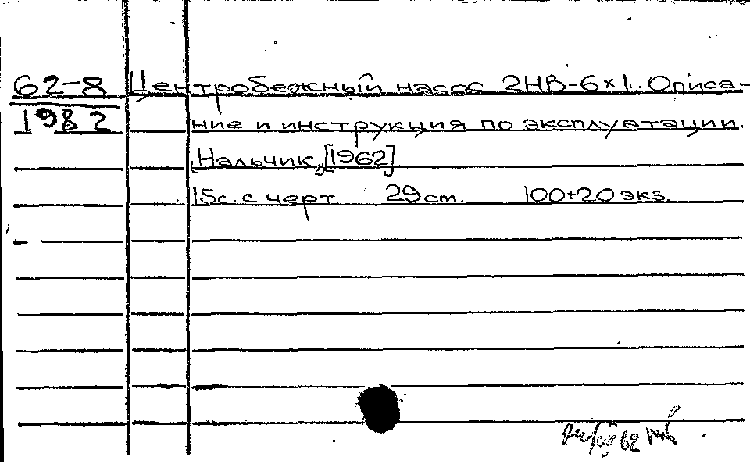 62-8 Центробежный насос 2НВ-6×1. Описа-
1982 ние и инструкция по эксплуатации.
Нальчик, [1962]
15с. с черт 29 см. 100+20 экз.
62